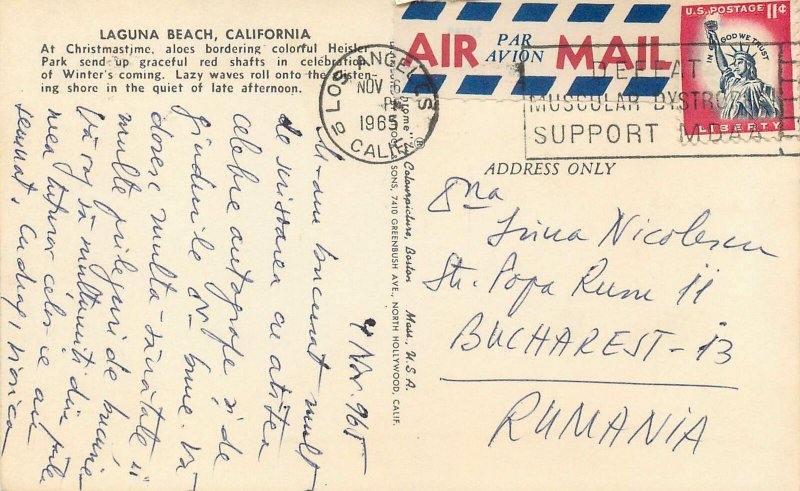 LAGUNA BEACH, CALIFORNIA
At Christmastime, aloes bordering colorful Heisler
Park send up graceful red shafts in celebration
of Winter's coming. Lazy waves roll onto the glisten-
ing shore in the quiet of late afternoon.
AIR PAR AVION MAIL
U.S. POSTAGE 11¢
IN GOD WE TRUST
LIBERTY
LOS ANGELES
NOV 6
PM
1965
CALIF
DEFEAT
MUSCULAR DYSTRO
SUPPORT MDAA
ADDRESS ONLY
Colourpicture, Boston Mass., U.S.A.
& SONS, 7410 GREENBUSH AVE., NORTH HOLLYWOOD, CALIF.
4 Nov. 965
M-am bucurat mult
de scrisoarea cu atâtea
celebre autografe și de
gîndurile dv. bune. Vă
doresc multă sănătate și
multe prilejuri de bucurie
Vă rog să mulțumiți din
mea tuturor celor ce au
semnat. Cu drag,
Dna
Irina Nicolescu
Str. Popa Rusu 11
BUCHAREST-13
RUMANIA